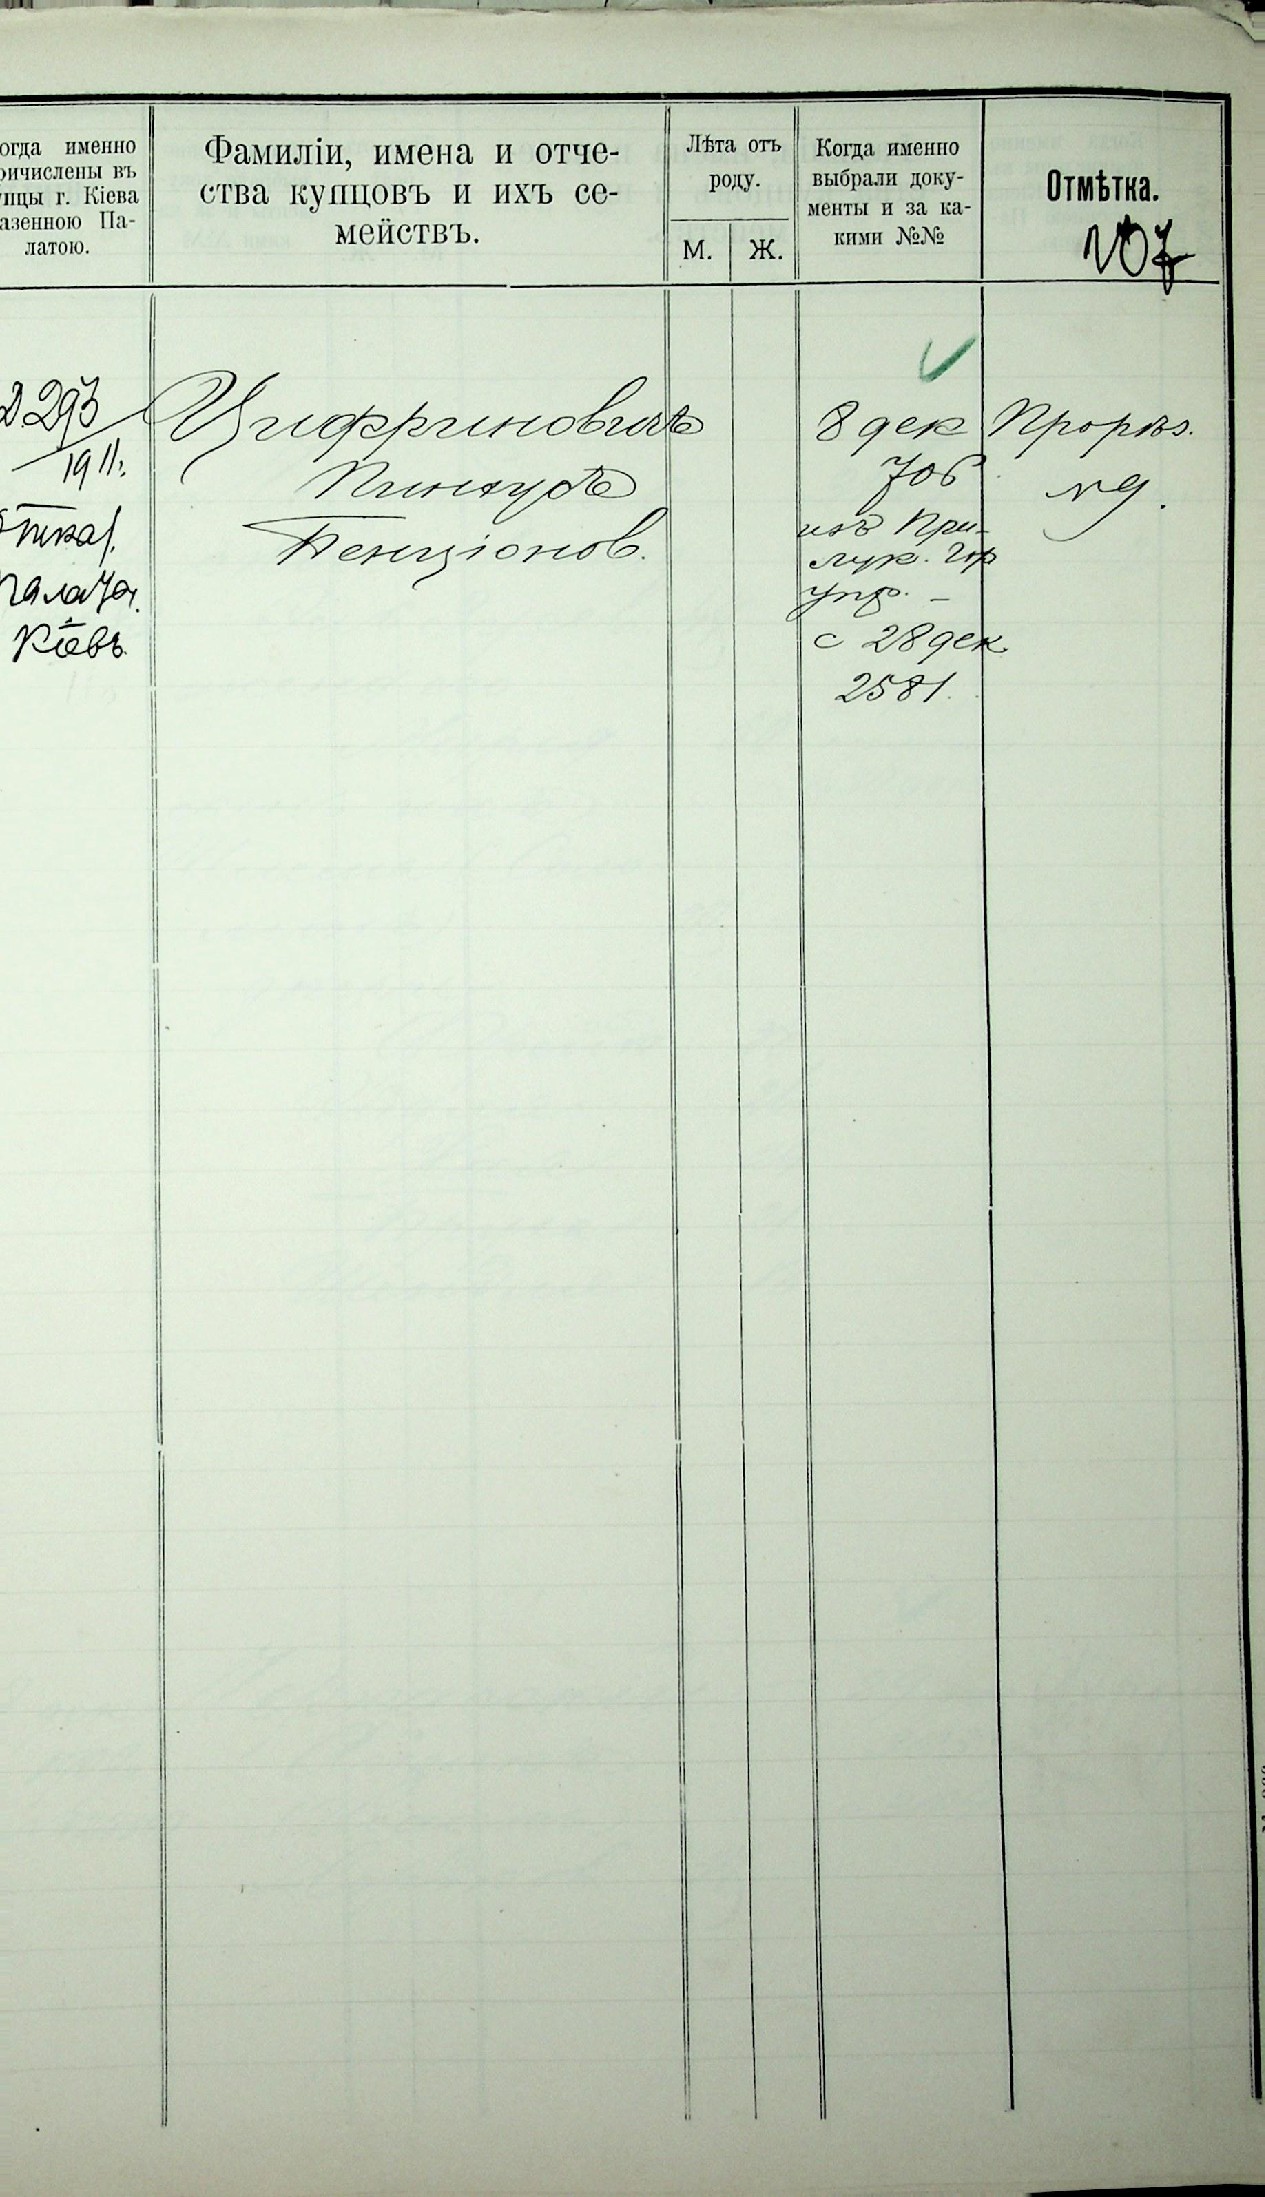 огда именно
ричислены въ
упцы г. Кіева
азенною Па-
латою.
Фамиліи, имена и отче-
ства купцовъ и ихъ се-
мействъ.
Лѣта отъ
роду.
М. Ж.
Когда именно
выбрали доку-
менты и за ка-
кими №№
Отмѣтка.
107
293
1911г.
Цифриновичъ
Пинхусъ
Бенціонов.
Палата.
Кіевъ
8 дек
706
изъ При-
лук. Гор
упр. –
с 28 дек
2581.
Прорѣз.
№ 9.